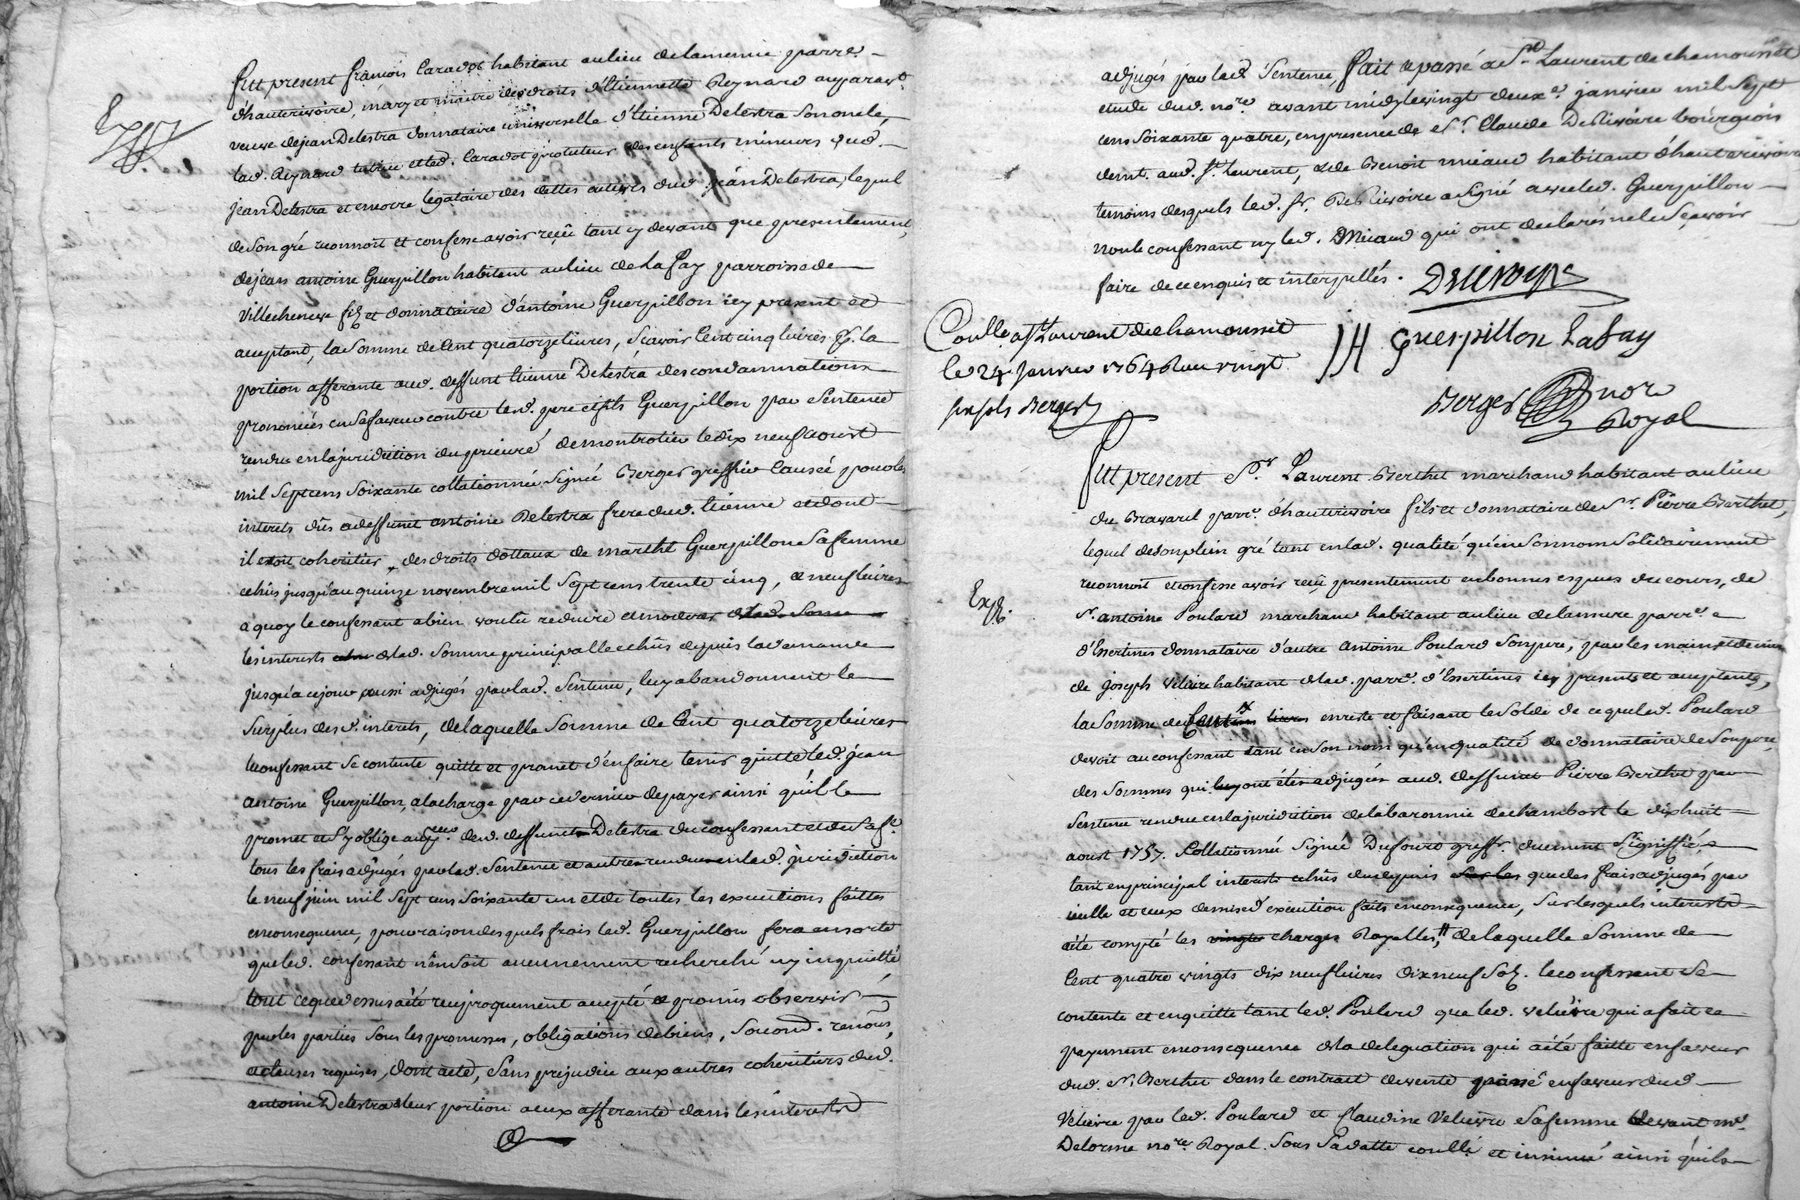 fut present françois Caradot habitant au lieu de lamenue parre
d'hauterivoire, mary et maitre des droits d'Etiennette Reynard auparavt
veuve de jean Delestra donnataire universelle d'Etienne Delestra son oncle,
lad. Reynard tutrice et led. Caradot protuteur des enfants mineurs dud.
jean Delestra et encore legataire des dettes actives dud. jean Delestra, lequel
de son gré reconnoit et confesse avoir reçu tant cy devant que presentement,
de jean antoine Guerpillon habitant au lieu de La fay parroisse de
Villecheneve fils et donnataire d'antoine Guerpillon icy present et
acceptant, la somme de Cent quatorze livres, sçavoir Cent cinq livres pr. la
portion afferante aud. deffunt Etienne Delestra des condamnations
prononcées en sa faveur contre lesd. pere et fils Guerpillon par sentence
rendue en la juridiction du prieuré de montrotier le dix neuf aoust
mil sept cens soixante collationnée signé Berger greffier causée pour les
interets dus a deffunt antoine Delestra frere dud. Etienne et dont
il etoit coheritier, des droits dottaux de marthe Guerpillon sa femme
echus jusqu'au quinze novembre mil sept cens trente cinq, et neuf livres
a quoy le confessant a bien voulu reduire et moderer
les interests de lad. somme principalle echus depuis la demande
jusqu'a ce jour aussi adjugés par lad. sentence, luy abandonnant le
surplus desd. interets, de laquelle somme de Cent quatorze livres
le confessant se contente quitte et promet d'en faire tenir quitte led. jean
antoine Guerpillon, a la charge par ce dernier de payer ainsi qu'il le
promet et s'y oblige dud. deffunt Delestra du confessant et de sa fe.
tous les frais adjugés par lad. sentence et autre rendue en lad. juridiction
le neuf juin mil sept cens soixante un et de toutes les executions faittes
en consequence, pour raison desquels frais led. Guerpillon fera en sorte
que led. confessant n'en soit aucunement recherché ny inquietté
tout ce que dessus a été reciproquement accepté et promis observer
par les parties sous les promesses, obligations de biens, soumd. renons,
et clauses requises, dont acte, sans prejudice aux autres coheritiers dud.
antoine Delestra de leur portion a eux afferante dans les interests
adjugés par lad. sentence, fait et passé a St. Laurent de chamousset
etude dud. nore. avant midy le vingt deuxe. janvier mil sept
cens soixante quatre, en presence de sr. Claude Delivoire bourgeois
demt. aud. St. Laurent, et de Benoit miaud habitant d'hauterivoire
temoins desquels led. sr. Delivoire a signé avec led. Guerpillon
non le confessant ny led. Miaud qui ont declaré ne le sçavoir
faire de ce enquis et interpellés.
Delivoire
Coullé a St Laurent de chamousset
le 24 janvier 1764 Reçu vingt
six sols Berger
JA Guerpillon Lafay
Berger nore
Royal
fut present Sr. Laurent Berthet marchand habitant au lieu
du Bravard parre. d'hauterivoire fils et donnataire de Sr. Pierre Berthet,
lequel de son plein gré tant en lad. qualité qu'en son nom solidairement
reconnoit et confesse avoir reçu presentement en bonnes espèces du cours, de
Expé.
Sr. antoine Poulard marchand habitant au lieu de la mure parre.
d'Essertines donnataire d'autre antoine Poulard son pere, par les mains et deniers
de joseph Veliere habitant de lad. parre. d'Essertines icy presents et acceptants,
la somme de en reste et faisant le solde de ce que led. Poulard
devoit au confessant tant en son nom qu'en qualité de donnataire de son pere,
des sommes qui ont été adjugées aud. deffunt Pierre Berthet par
sentence rendue en la juridiction de la baronnie de chambost le dix huit
aoust 1757. Collationnée signé Dufour greffr. duement signiffiée
tant en principal interests echus du depuis que des frais adjugés par
icelle et ceux de mise d'execution faits en consequence, sur lesquels interests
a été compté les charges Royalles, de laquelle somme de
Cent quatre vingts dix neuf livres dix neuf sols. le confessant se
contente et en quitte tant led. Poulard que led. Veliere qui a fait ce
payement en consequence de la delegation qui a été faitte en faveur
dud. Sr. Berthet dans le contrat de vente passé en faveur dud.
Veliere par led. Poulard et Claudine Veliere sa femme devant me.
Delorme nore. Royal sous sa datte coullé et insinué ainsi qu'ils